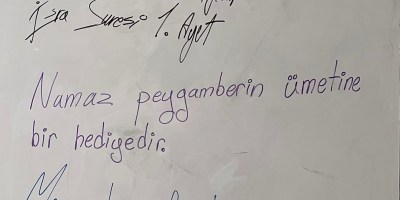 İsra Suresi 1. Ayet
Namaz peygamberin ümetine
bir hediyedir.